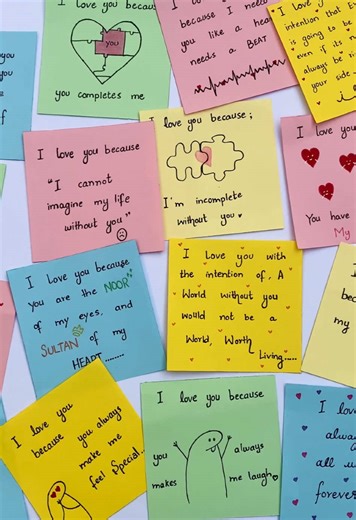 I love you because
you
you completes me
because I need
you like a hea
needs a BEAT
I love you
intention that t
is going to be
even if its n
always be ri
your side
I love you because
"I cannot
imagine my life
without you"
I love you because;
I'm incomplete
without you
I love you
You have
My
I love you because
you are the NOOR
of my eyes, and
SULTAN of my
HEART........
I Love you with
the intention of, A
World without you
would not be a
World, Worth
Living.....
I love you
because you always
make me
feel Special...
I love you because
you always
makes me laugh
I lov
alwa
all w
forever